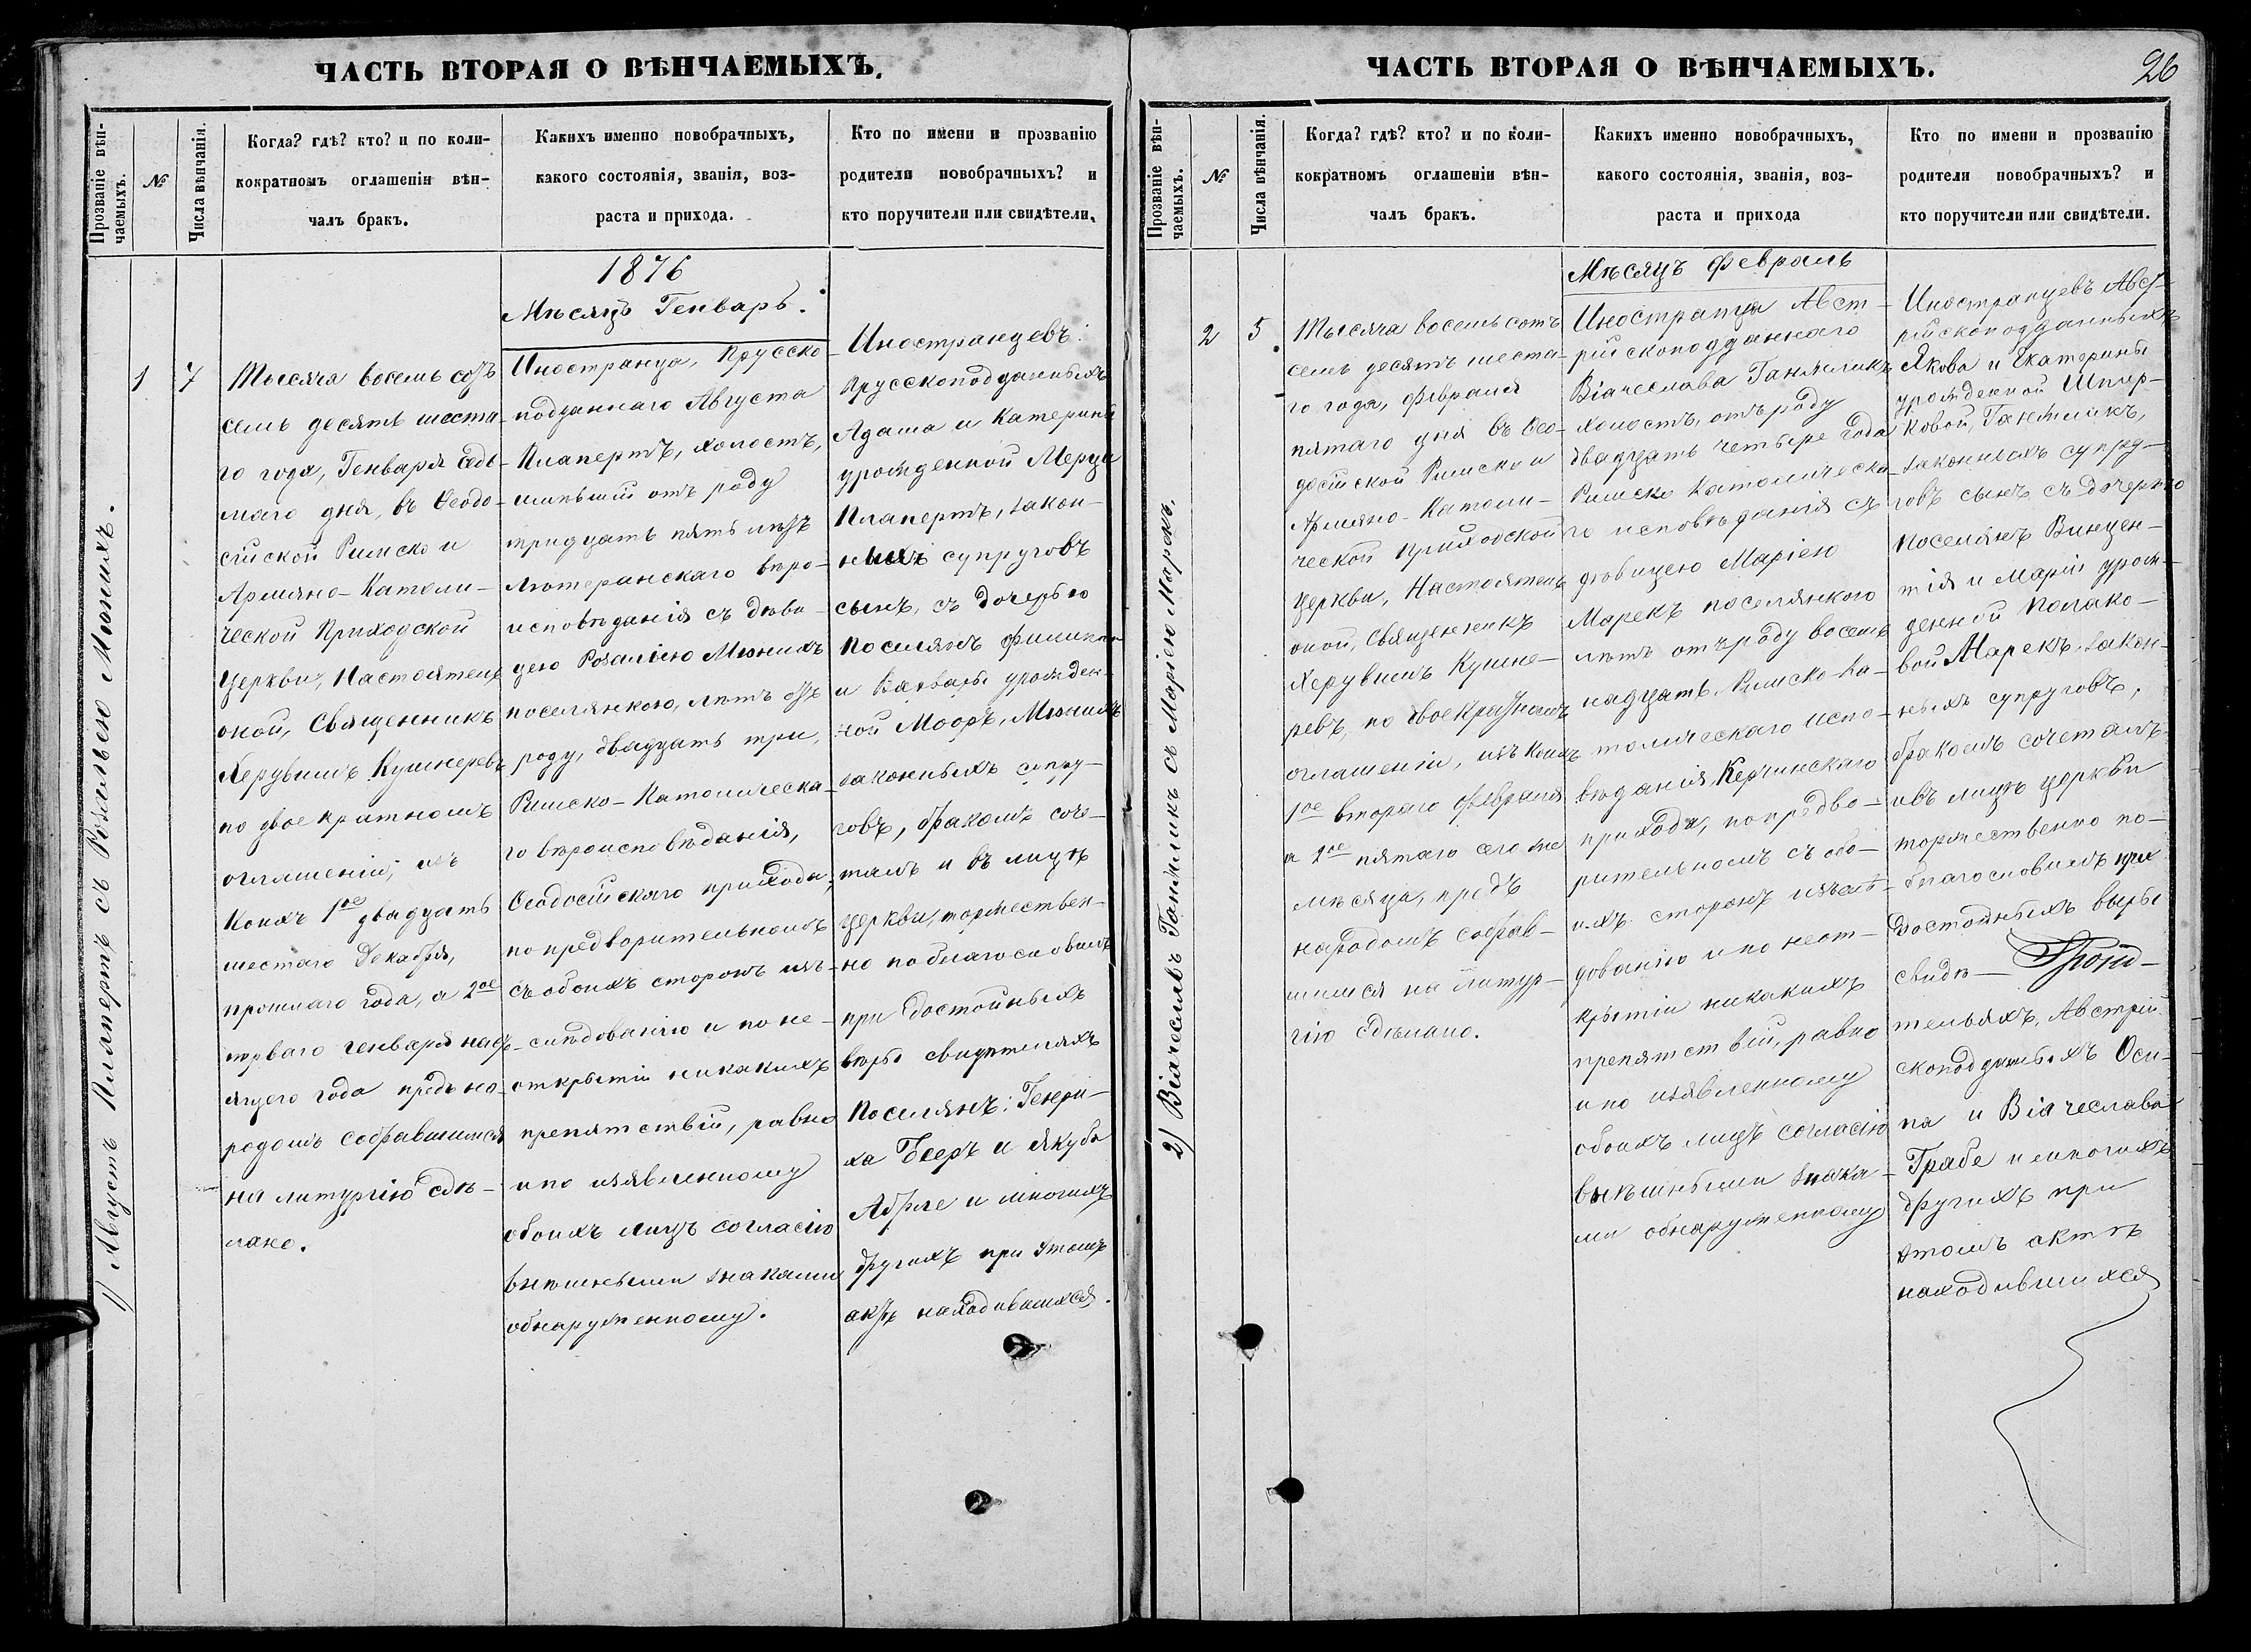 ЧАСТЬ ВТОРАЯ О ВѢНЧАЕМЫХЪ.
Прозваніе вѣн-
чаемыхъ.
№
Числа вѣнчанія.
Когда? гдѣ? кто? и по коли-
кократномъ оглашеніи вѣн-
чалъ бракъ.
Какихъ именно новобрачныхъ,
какого состоянія, званія, воз-
раста и прихода.
Кто по имени и прозванію
родители новобрачныхъ? и
кто поручители или свидѣтели.
1) Августъ Плапертъ съ Розальею Мюнихъ.
1
7
Тысяча восемь сотъ
семь десятъ шеста-
го года, Генваря седь-
маго дня, въ Ѳеодо-
сійской Римско и
Армяно-Католи-
ческой Приходской
Церкви, Настоятель
оной, Священникъ
Херувимъ Кушнеревъ
по двоекратномъ
оглашеніи, изъ
коихъ 1ое двадцать
шестаго Декабря,
прошлаго года, а 2ое
перваго генваря наст-
ящего года предъ на-
родомъ собравшимся
на литургію сдѣ-
лано.
1876
Мѣсяцъ Генварь.
Иностранца, Прусско-
подданнаго Августа
Плапертъ, холостъ,
имѣвшій отъ роду
тридцать пять лѣтъ
лютеранскаго вѣро-
исповѣданія съ дѣви-
цею Розаліею Мюнихъ
поселянкою, лѣтъ отъ
роду, двадцать три,
Римско-Католическа-
го вѣроисповѣданія,
Ѳеодосійскаго прихода,
по предворительномъ
съ обоихъ сторонъ изъ-
слѣдованію и по не-
открытіи никакихъ
препятствій, равно
и по изявленному
обоихъ лицъ согласію
внѣшными знаками
обнаруженному.
Иностранцевъ:
Прусскоподданныхъ
Адама и Катерины
урожденной Мерцъ
Плапертъ, закон-
ныхъ супруговъ
сынъ, съ дочерью
Поселянъ Филиппа
и Варвары урожден-
ной Мооръ, Мюнихъ
законныхъ супру-
говъ, бракомъ соче-
талъ и въ лицѣ
церкви, торжествен-
но поблагословилъ
при достойныхъ
вѣры свидѣтеляхъ
Поселянъ: Генри-
ха Бееръ и Якуба
Абрле и многихъ
другихъ при этомъ
актѣ находившихся.
ЧАСТЬ ВТОРАЯ О ВѢНЧАЕМЫХЪ.
26
Прозваніе вѣн-
чаемыхъ.
№
Числа вѣнчанія.
Когда? гдѣ? кто? и по коли-
кократномъ оглашеніи вѣн-
чалъ бракъ.
Какихъ именно новобрачныхъ,
какого состоянія, званія, воз-
раста и прихода
Кто по имени и прозванію
родители новобрачныхъ? и
кто поручители или свидѣтели.
2) Віачеславъ Ганжликъ съ Маріею Марекъ.
2
5.
Тысяча восемь сотъ
семь десятъ шеста-
го года, Февраля
пятаго дня въ Ѳео-
досійской Римско и
Армяно-Католи-
ческой Приходской
Церкви, Настоятель
оной, Священникъ
Херувимъ Кушне-
ревъ, по двоекратномъ
оглашеніи, изъ коихъ
1ое втораго Февраля
а 2ое пятаго сего же
мѣсяца, предъ
народомъ собрав-
шимся на литур-
гію сдѣлано.
Мѣсяцъ Февраль
Иностранца Авст-
рійскоподданнаго
Віачеслава Ганжликъ
холостъ, отъ роду
двадцать четыре года
Римско Католическа-
го исповѣданія съ
дѣвицею Маріею
Марекъ поселянкою
лѣтъ отъ роду восем-
надцать, Римско-Ка-
толическаго испо-
вѣданія, Керчинскаго
прихода, по предво-
рительномъ съ обо-
ихъ сторонъ изъслѣ-
дованію и по неот-
крытіи никакихъ
препятствій, равно
и по изявленному
обоихъ лицъ согласію
внѣшными знака-
ми обнаруженному
Иностранцевъ Авст-
рійскоподданныхъ
Якова и Екатерины
урожденной
ковой, Ганжликъ,
законныхъ супру-
говъ сынъ съ дочерью
Поселянъ Винцен-
тія и Маріи урож-
денной Поляко-
вой Марекъ, закон-
ныхъ супруговъ,
бракомъ сочеталъ
и въ лицѣ церкви
торжественно по-
благословилъ при
Достойныхъ вѣры
свидѣ-
тельяхъ, Австрій
скоподданныхъ Оси-
па и Віачеслава
Грабе и многихъ
другихъ при
этомъ актѣ
находившихся